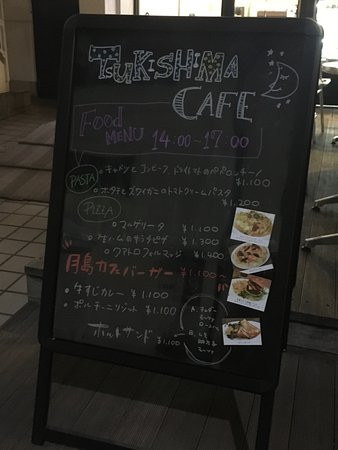 TSUKISHIMA
CAFE
Food
MENU 14:00-17:00
PASTA
キャベツとコンビーフ、ドライトマトのペペロンチーノ
¥1.100
ホタテとズワイガニのトマトクリームパスタ
¥1.200
PIZZA
マルゲリータ ¥1.100
生ハムのサラダピザ ¥1.300
クアトロフォルマッジ ¥1.400
月島カフェバーガー ¥1.100~
牛すじカレー ¥1.100
ポルチーニリゾット ¥1.100
ホットサンド ¥1.100
A.
B.